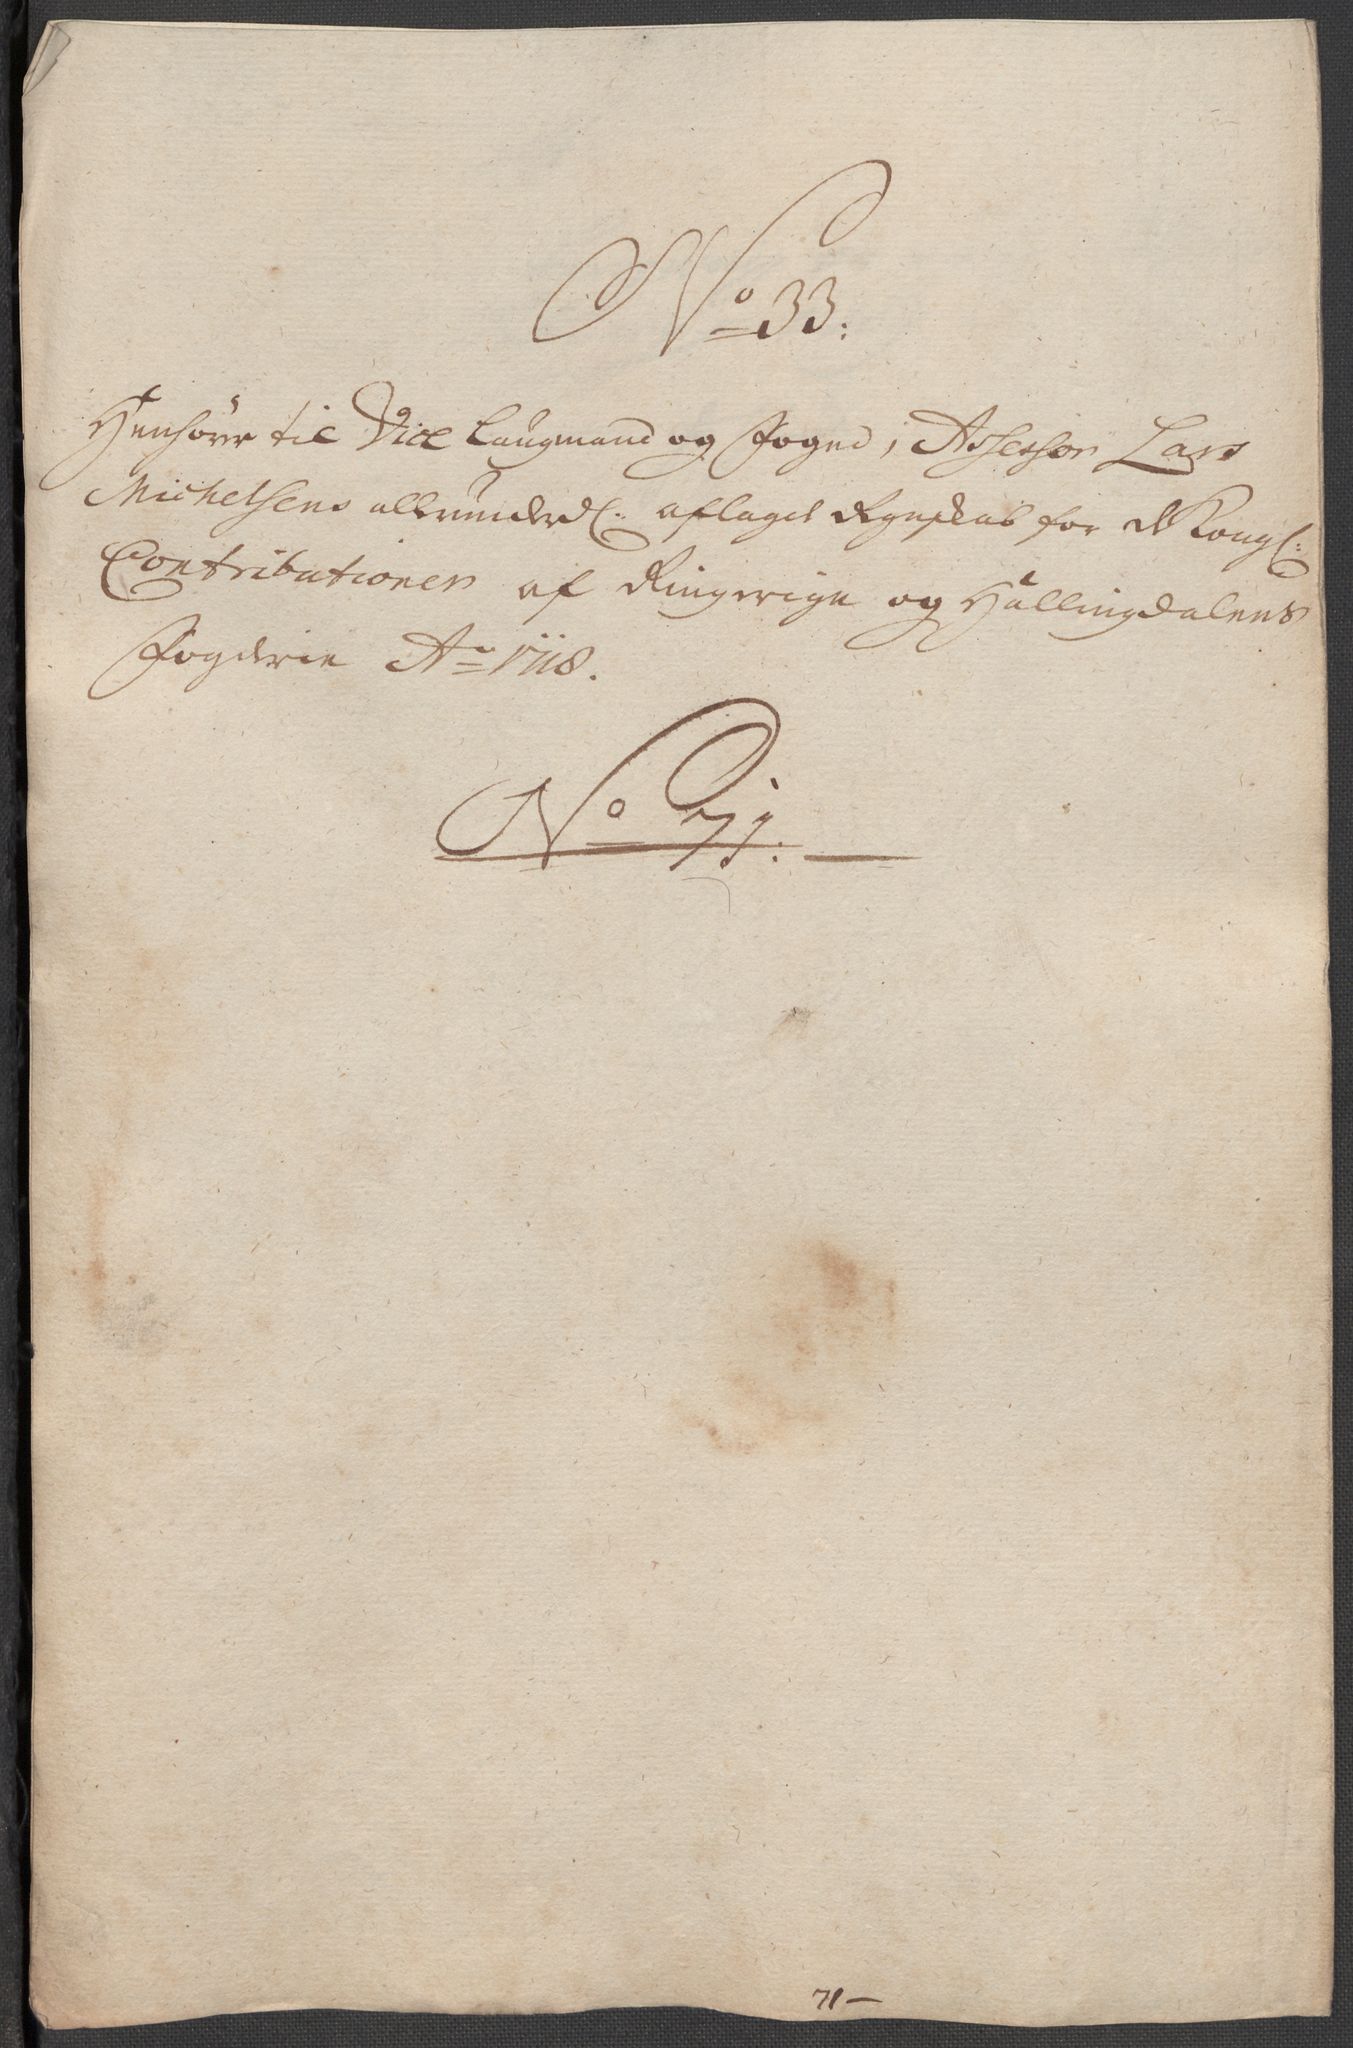 No 33:
Henhörer til Vice Laugmand og Foged, Assessor Lars
Michelsens allerunderd: aflagde Regnskab for de Kongl:
Contributioner af Ringerige og Hallingdalens
Fogderie Ao 1718.
No 71:
71-